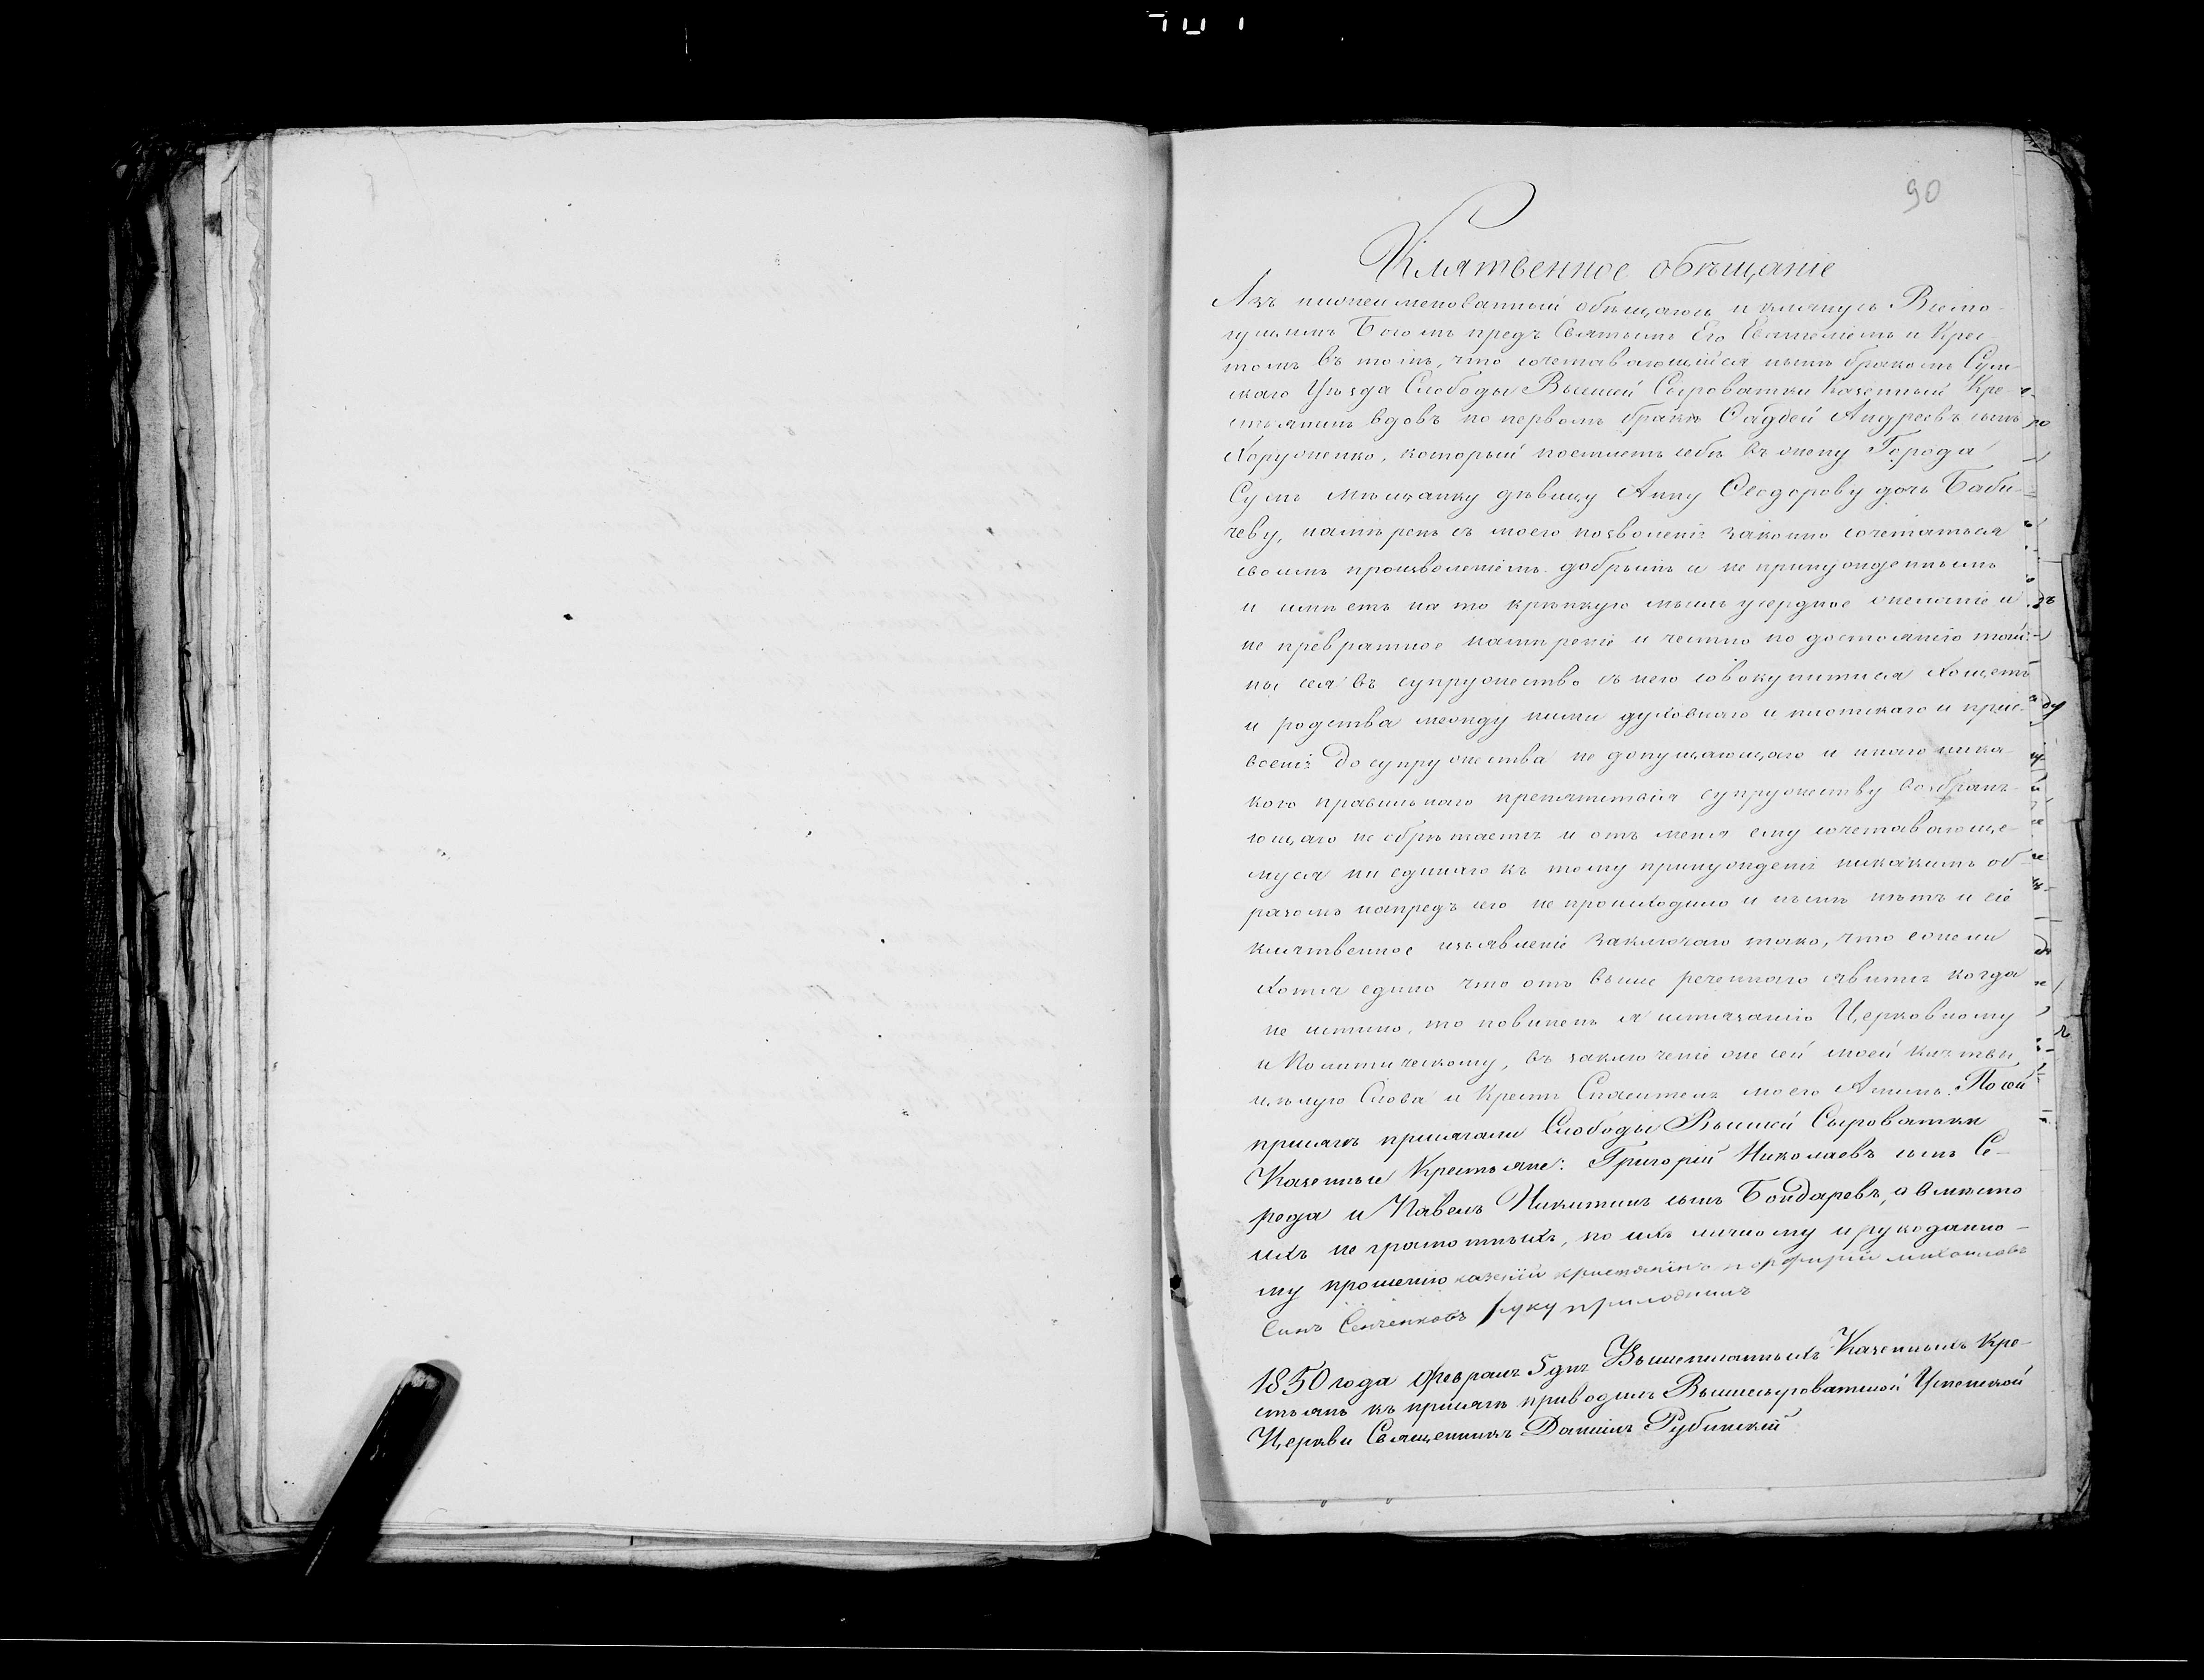 90
Клятвенное обѣщаніе
Азъ нижеименованный обѣщаюсь и клянусь Всемо-
гущимъ Богомъ предъ Святымъ Его Евангеліемъ и Крес
томъ въ томъ, что сочетавающійся нынѣ бракомъ Сум-
скаго Уѣзда Слободы Вышней Сыроватки Казенный Кре-
стьянинъ вдовъ по первомъ бракѣ Фадѣей Андреевъ сынъ
Хоруженко, который поемлетъ себѣ въ жену Города
Сумъ мѣщанку дѣвицу Анну Ѳеодорову дочь Баби-
чеву, намѣренъ съ моего позволенія законно сочетаться
своимъ произволеніемъ добрымъ и не принужденнымъ
и имѣетъ на то крѣпкую мысль усердное желаніе и
не превратное намѣреніе и честно по достоянію тай-
ны сея въ супружество съ нею совокупитися хощетъ
и родства между ними духовнаго и плотскаго и прис-
военія до супружества не допущающаго и инаго ника-
кого правильнаго препятствія супружеству возбраня-
ющаго не обрѣтается и отъ меня ему сочетавающе-
муся ни единаго къ тому принужденія никакимъ об-
разомъ напредъ сего не происходило и нынѣ нѣтъ и сіе
клятвенное изъявленіе заключаю тако, что ежели
хотя едино что отъ выше реченнаго явится когда
не истино, то повиненъ я истязанію Церковному
и Политическому, въ заключеніе же сей моей клятвы,
цѣлую Слова и Крестъ Спасителя моего Аминь. По сей
присягѣ присягали Слободы Вышней Сыроватки
Казенные Крестьяне: Григорій Николаевъ сынъ Се-
реда и Павелъ Никитинъ сынъ Бондаревъ, а вмѣсто
ихъ не грамотныхъ, по ихъ личному и рукоданно-
му прошенію казеній кристянінъ порфирій михаиловъ
Синъ Сенченковъ руку приложилъ
1850 года Февраля 5 дня Вышеписанныхъ Казенныхъ Кре-
стьянъ къ присягѣ приводилъ Вышнесыроватской Успенской
Церкви Священникъ Даніилъ Рубинскій